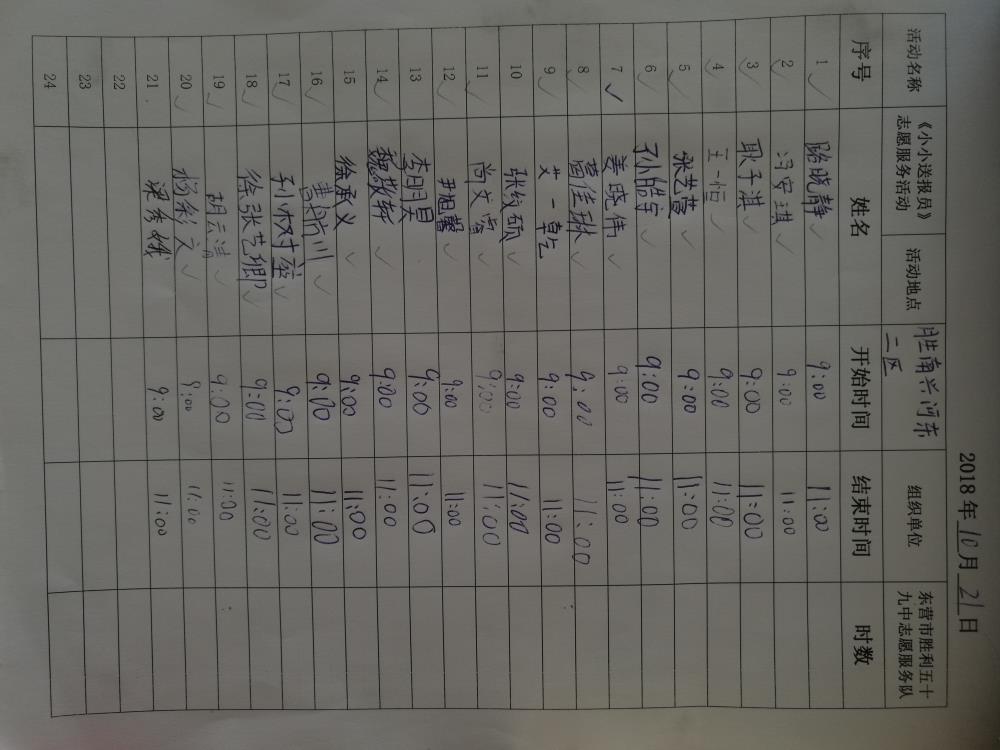 2018年10月21日
活动名称 《小小送报员》志愿服务活动 活动地点 胜南兴河东二区 组织单位 东营市胜利五十九中志愿服务队
序号 姓名 开始时间 结束时间 时数
1 路晓静 9:00 11:00
2 冯安琪 9:00 11:00
3 耿子淇 9:00 11:00
4 王一恒 9:00 11:00
5 张艺萱 9:00 11:00
6 孙皓宇 9:00 11:00
7 姜晓伟 9:00 11:00
8 葛佳琳 9:00 11:00
9 艾一乾 9:00 11:00
10 张纹硕 9:00 11:00
11 尚文睿 9:00 11:00
12 尹旭馨 9:00 11:00
13 李明昊 9:00 11:00
14 魏敬轩 9:00 11:00
15 徐承义 9:00 11:00
16 曹航川 9:00 11:00
17 孙权 9:00 11:00
18 徐张艺卿 9:00 11:00
19 胡云清 9:00 11:00
20 杨彩文 9:00 11:00
21 梁秀娥 9:00 11:00
22
23
24